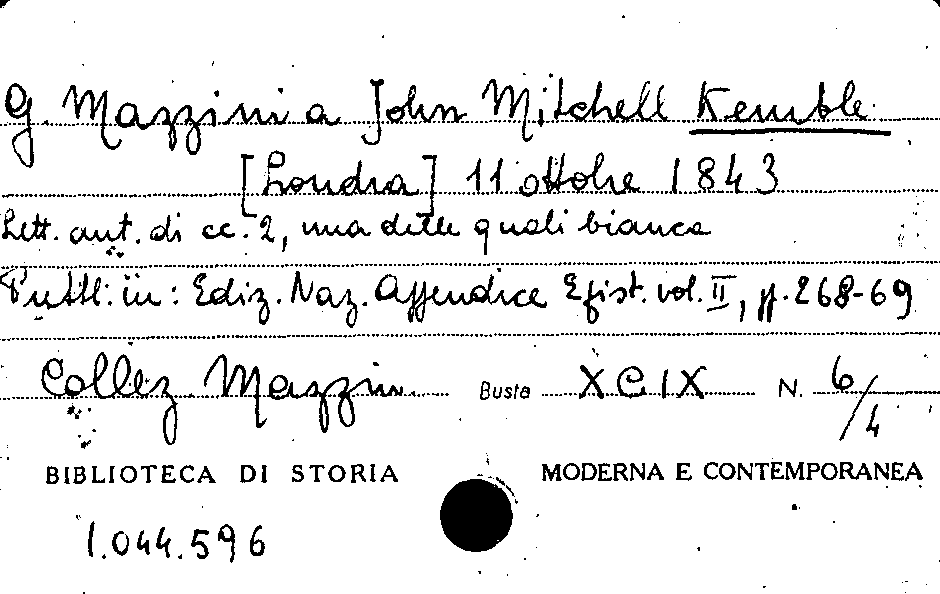 G. Mazzini a John Mitchell Kemble
[Londra] 11 ottobre 1843
Lett. aut. di cc. 2, una delle quali bianca
Pubbl. in: Ediz. Naz. Appendice Epist. vol. II, pp. 268-69
Collez. Mazzin. Busta XCIX N. 6/4
BIBLIOTECA DI STORIA MODERNA E CONTEMPORANEA
1.044.596